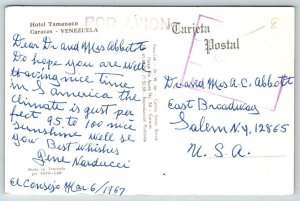 Hotel Tamanaco
Caracas - VENEZUELA
PAR AVION
Tarjeta
Postal
Dear Dr and Mrs Abbott
Do hope you are well
Having nice time
in S America the
climate is just per
fect 95 to 100 nice
sunshine well se
you Best Whishes
Gene Narducci
El Consejo Mar 6/1967
Dr and Mrs A.C. Abbott
East Broadway
Salem N.Y, 12865
U. S. A.
Hecho en Venezuela